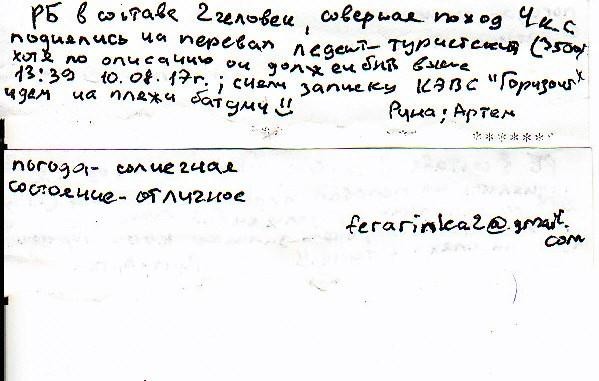 РБ в составе 2 человек, совершая поход 4 к.с
поднялись на перевал Ледент-туристский (3500м
хотя по описанию он должен быть выше
13:39 10.08.17г.; сняли записку КЭВС "Горизонт"
идем на пляжи батуми!!
Руна; Артем
*******
погода- солнечная
состояние- отличное
ferarinka2@gmail.
com